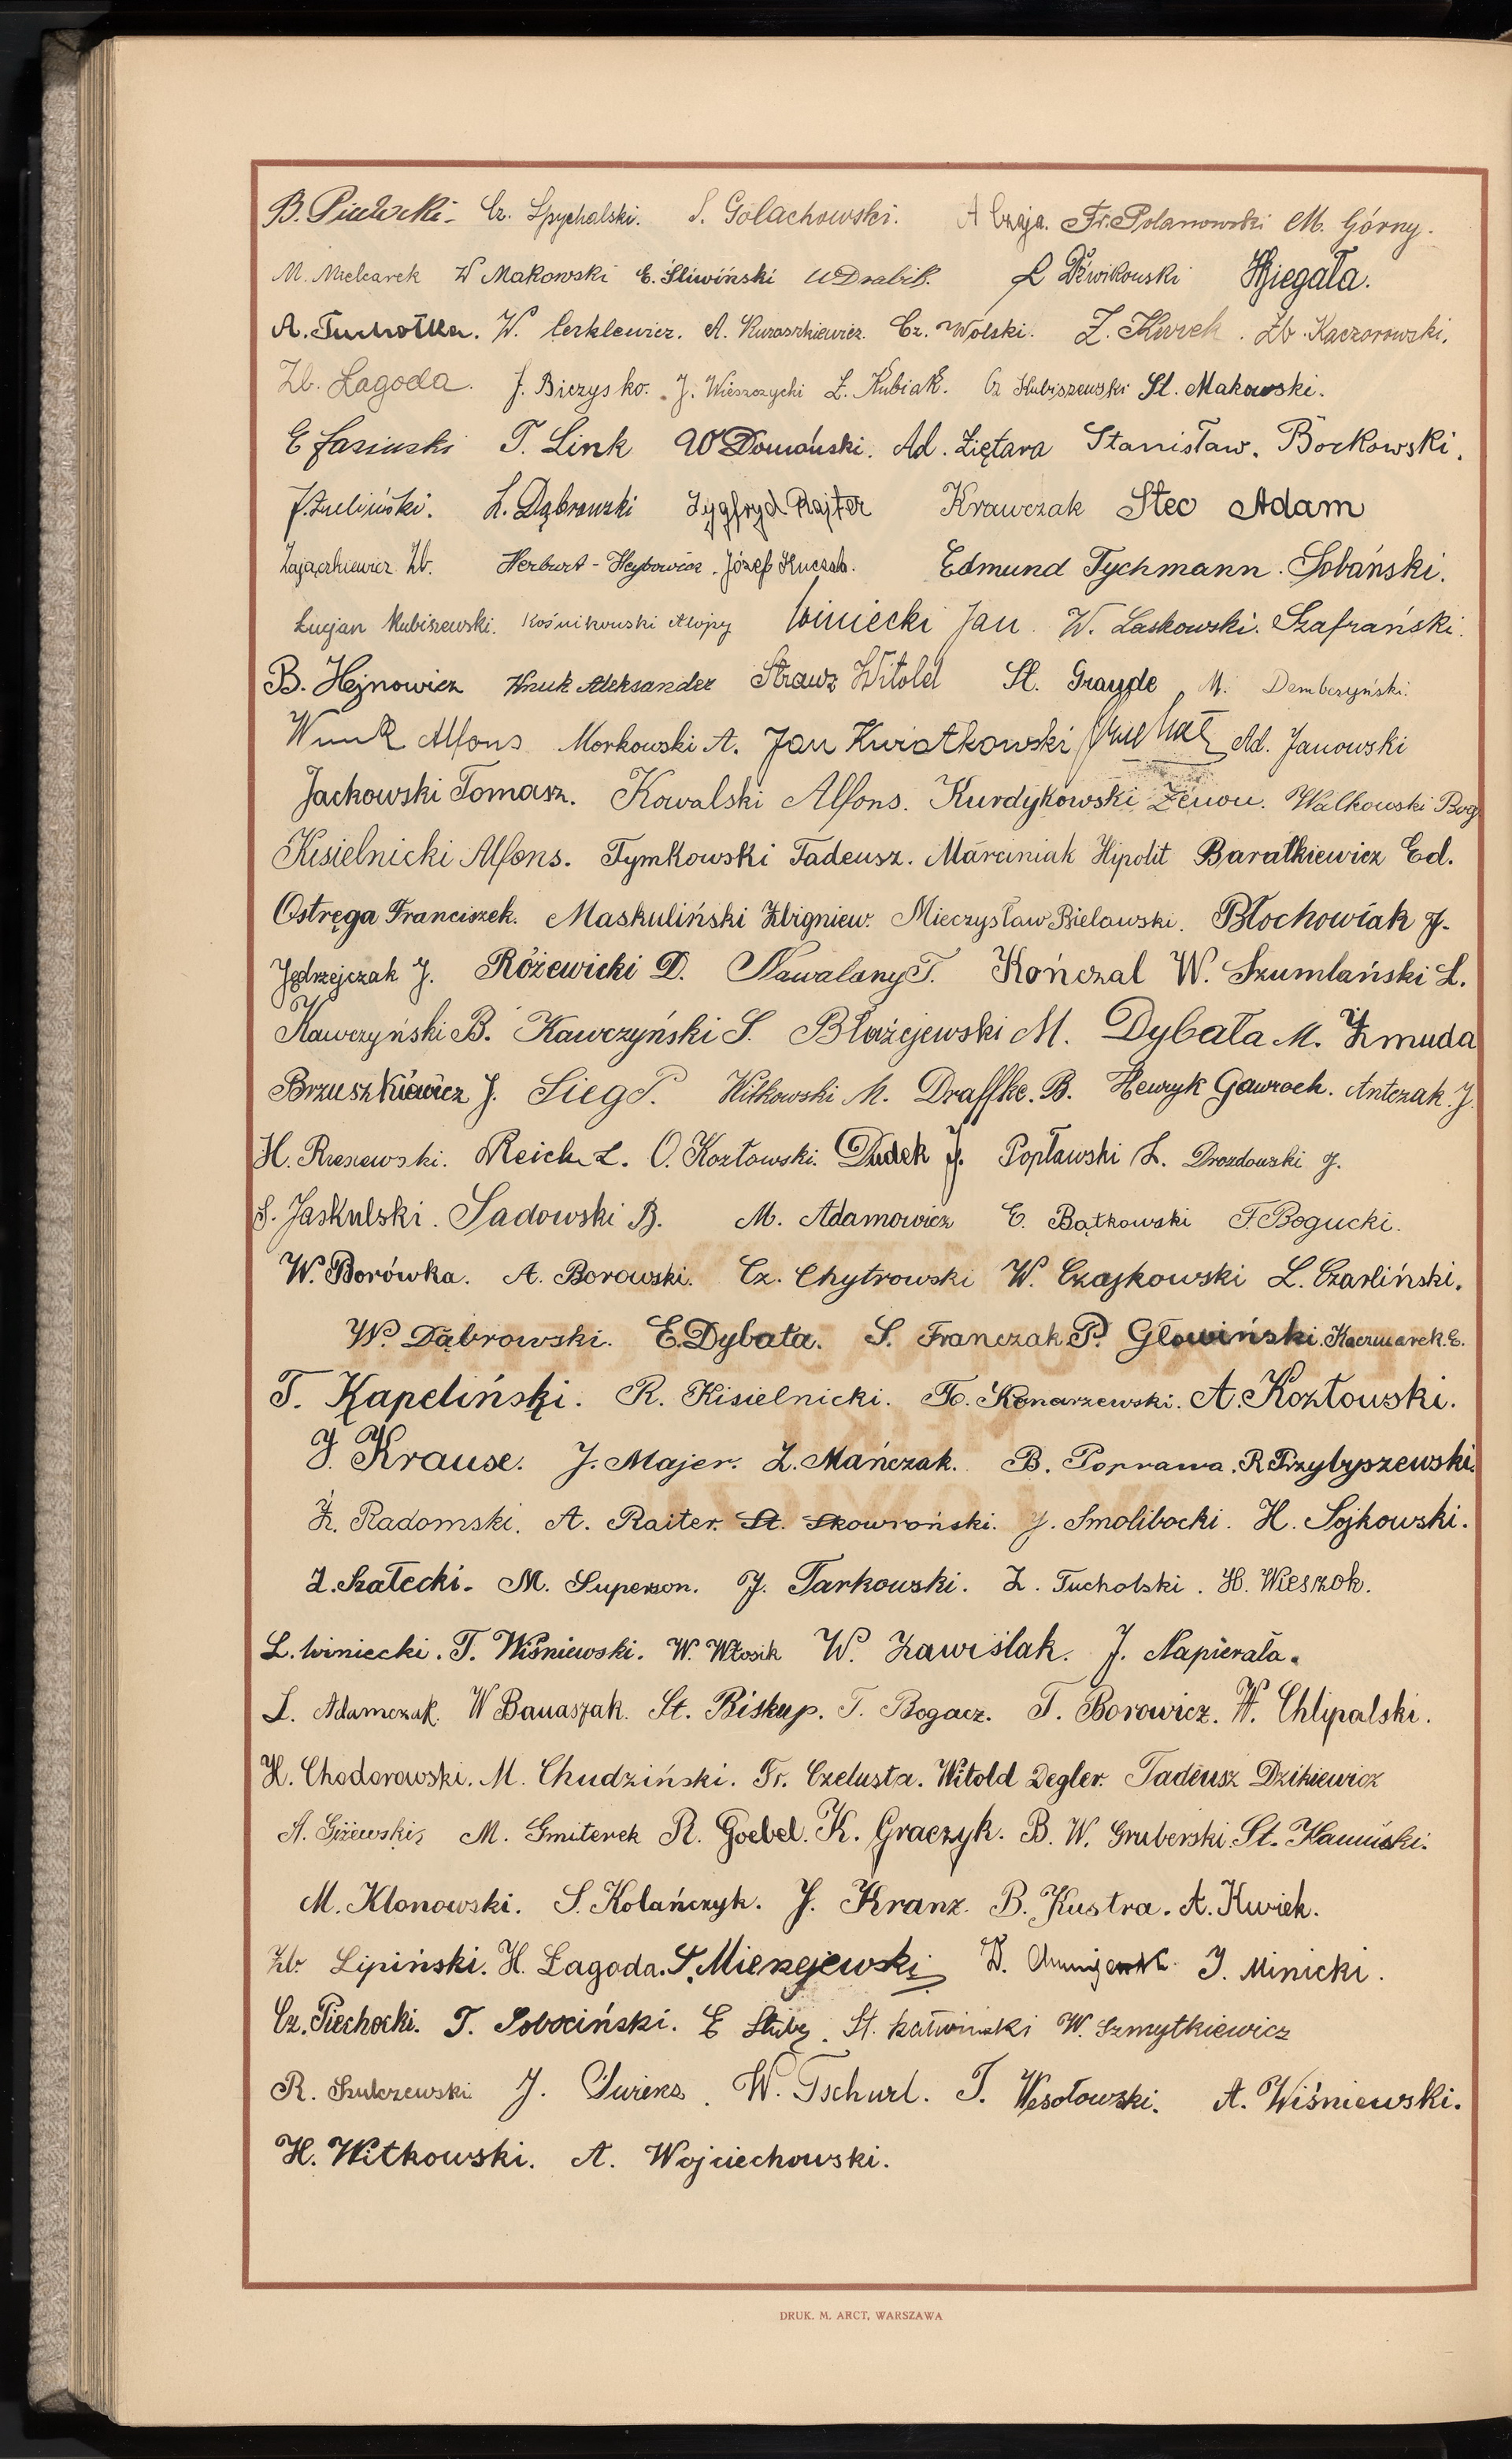 B. Cz. Spychalski. S. Gołachowski. A Czaja. Fr. Polanowski M. Górny.
M. Mielcarek W Makowski E. Śliwiński W Drabik. Biegała.
A. Tuchołka. W. Cerklewicz. A. Kuraszkiewicz. Cz. Wolski. Z. Kurek. Zb. Kaczorowski.
Zb. Łagoda. J. Biczysko. J. Wieszczycki Z. Kubiak. Cz Kubiszewski St. Makowski.
E Jasinski T. Link W Domański. Ad. Ziętara Stanisław. Borkowski.
J. Zieliński. L. Dąbrowski Zygfryd Rajter Krawczak Stec Adam
Zajączkiewicz Zb. Herburt-Heybowicz. Józef Kuczab. Edmund Tychmann. Sobański.
Lucjan Kubiszewski. Kośnikowski Alojzy Winiecki Jan W. Laskowski. Szafrański.
B. Hejnowicz Knuk Aleksander Strausz Witold St. Grayde M. Dembczyński.
Alfons Morkowski A. Jan Kwiatkowski Ad. Janowski
Jackowski Tomasz. Kowalski Alfons. Kurdykowski Zenon. Walkowski Bog
Kisielnicki Alfons. Tymkowski Tadeusz. Marciniak Hipolit Baratkiewicz Ed.
Ostręga Franciszek. Maskuliński Zbigniew. Mieczysław Bielawski. Błochowiak J.
Jędrzejczak J. Różewicki D. Nawalany T. Kończal W. Szumlański L.
Kawczyński B. Kawczyński S. Błażejewski M. Dybała M. Żmuda
Brzuszkiewicz J. Sieg P. Witkowski M. Draffke. B. Henryk Gawroch. Antczak. J.
H. Rzeszewski. Reich Z. O. Kozłowski. Dudek J. Popławski L. Drozdowski J.
S. Jaskulski. Sadowski B. M. Adamowicz E. Bątkowski F. Bogucki.
W. Borówka. A. Borowski. Cz. Chytrowski W. Czajkowski L. Czarliński.
W. Dąbrowski. E. Dybała. S. Franczak P. Głowiński. Kaczmarek. E.
T. Kapeliński. R. Kisielnicki. Fr. Konarzewski. A. Kozłowski.
J. Krause. J. Majer. Z. Mańczak. B. Poprawa. R Przybyszewski.
Z. Radomski. A. Raiter. St. Skowroński. J. Smolibocki. H. Sojkowski.
Z. Szałecki. M. Superson. J. Tarkowski. Z. Tucholski. H. Wieszok.
L. Winiecki. T. Wiśniewski. W. Włosik W. Zawiślak. J. Napierała.
L. Adamczak. W Banaszak. St. Biskup. T. Bogacz. T. Borowicz. W. Chlipalski.
H. Chodorowski. M. Chudziński. Fr. Czelusta. Witold Degler. Tadeusz Dzikiewicz
A. Giżewski, M. Gmiterek R. Goebel. K. Graczyk. B. W. Gruberski. St. Kamiński.
M. Klonowski. S. Kolańczyk. J. Kranz. B. Kustra. A. Kwiek.
Zb. Lipiński. H. Łagoda. S. Mierzejewski J. Minicki.
Cz. Piechocki. T. Sobociński. E St. W. Szmytkiewicz
R. Szulczewski J. W. Tschurl. T. Wesołowski. A. Wiśniewski.
H. Witkowski. A. Wojciechowski.
DRUK. M. ARCT, WARSZAWA